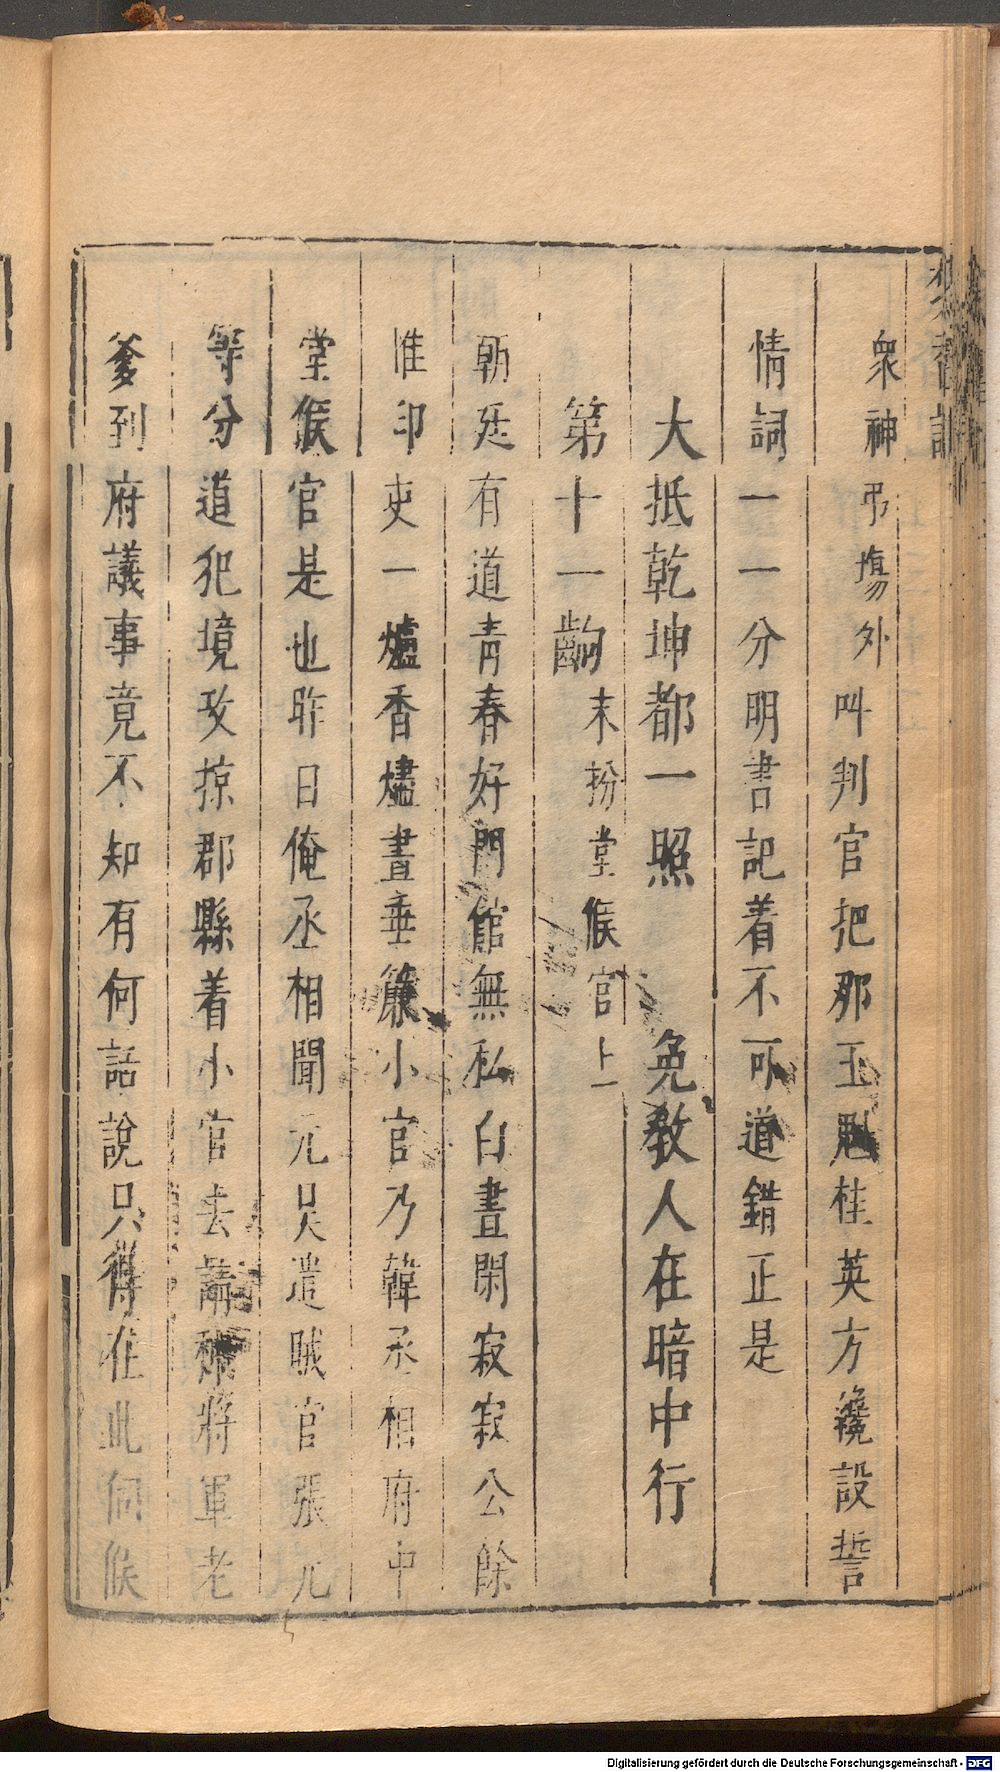 衆神弔塲外叫判官把那王魁桂英方纔設誓
情詞一一分明書記着不可道錯正是
大抵乾坤都一照　免教人在暗中行
第十一齣末扮堂候官上
朝廷有道青春好門館無私白晝閑寂寂公餘
惟印吏一爐香燼晝垂簾小官乃韓丞相府中
堂候官是也昨日俺丞相聞元昊遣賊官張元
等分道犯境攻掠郡縣着小官去請將軍老
爹到府議事竟不知有何話說只得在此伺候
Digitalisierung gefördert durch die Deutsche Forschungsgemeinschaft - DFG